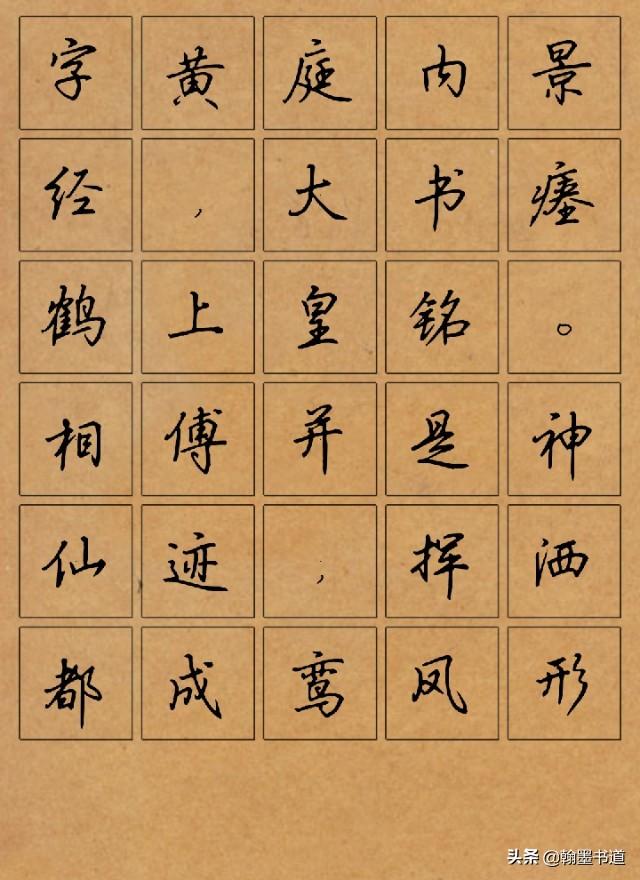 字黄庭内景
经，大书瘗
鹤上皇铭。
相傅并是神
仙迹，挥洒
都成鸾凤形
头条 @翰墨书道